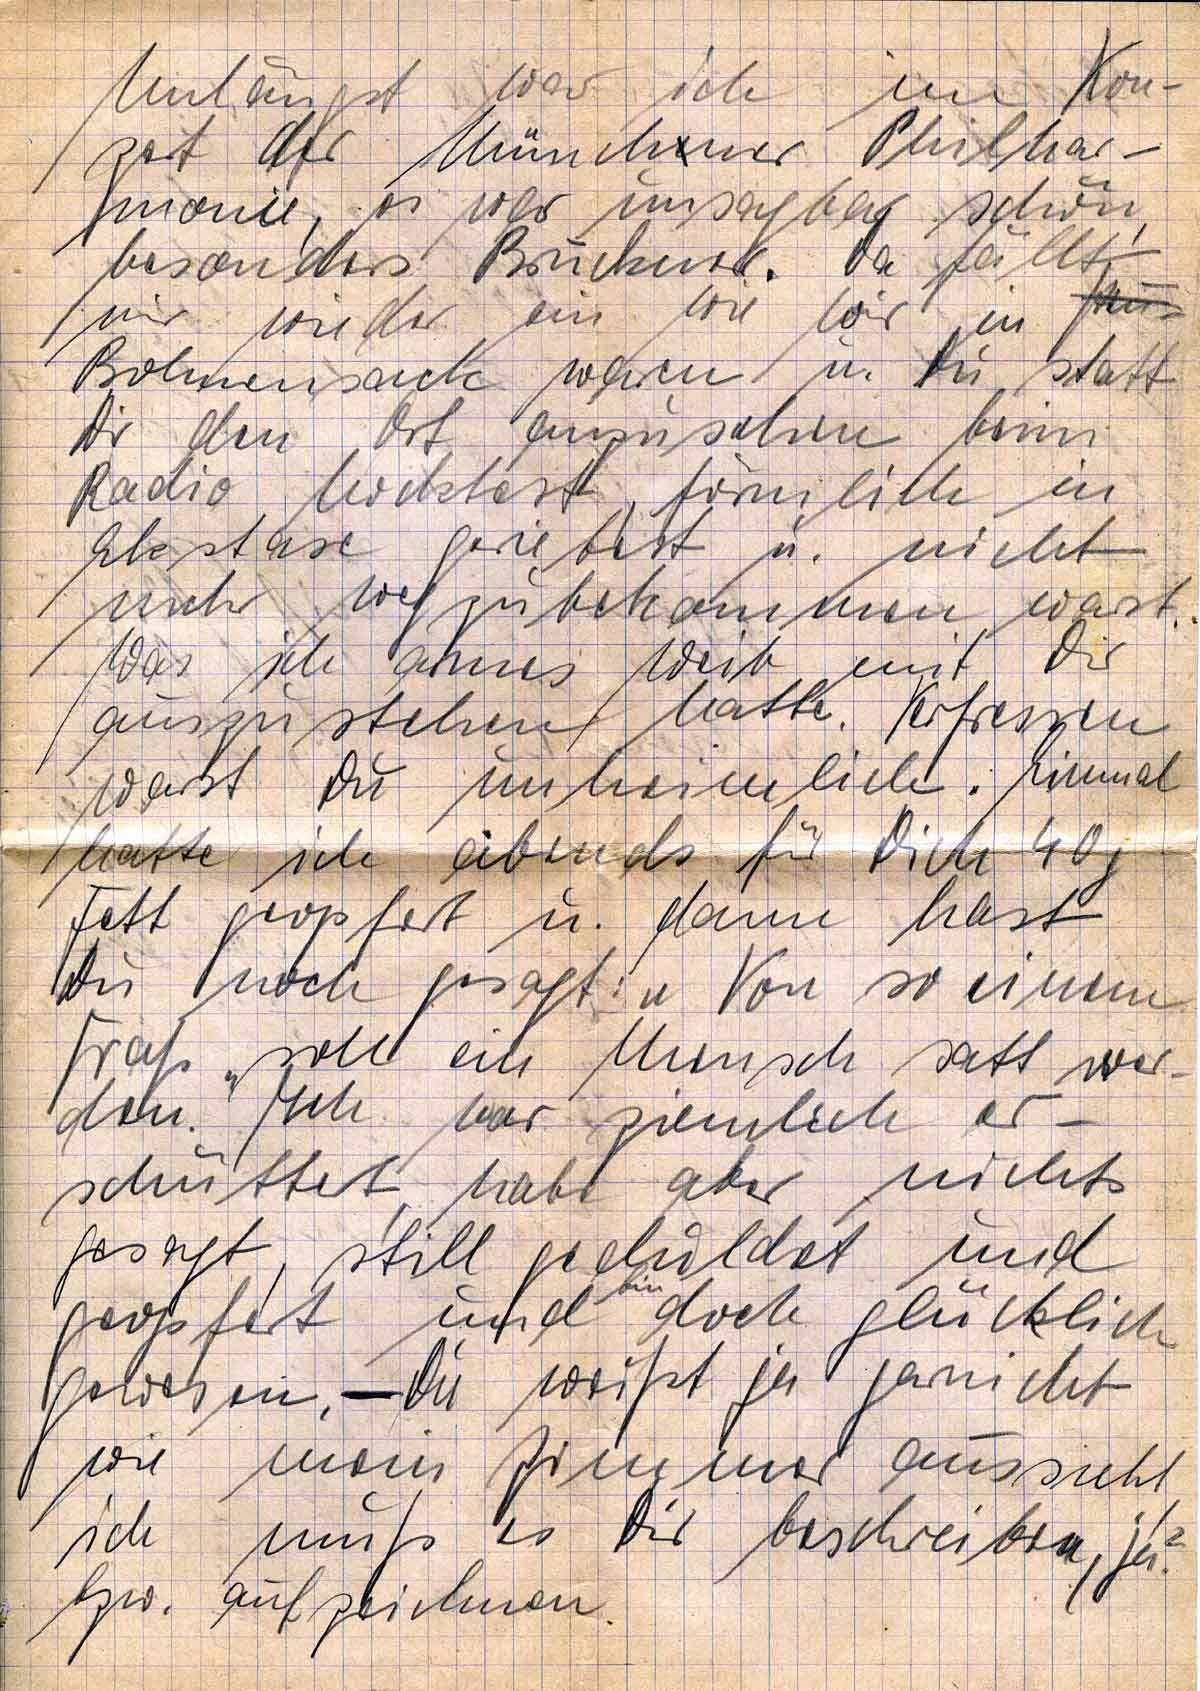 Unlängst war ich im Kon-
zert der Münchner Philhar-
monie, es war unsagbar schön,
besonders Bruckner. Da fällt
mir wieder ein wie wir in
Bolmensack waren u. Du statt
Dir den Ort anzusehen beim
Radio hocktest, förmlich in
Ekstase gerietst u. nicht
mehr wegzubekommen warst.
Was ich armes Weib mit Dir
auszustehen hatte. Verfressen
warst Du unheimlich. Einmal
hatte ich abends für Dich 40 g
Fett geopfert u. dann hast
Du noch gesagt: „Von so einem
Fraß „soll ein Mensch satt wer-
den." Ich war ziemlich er-
schüttet, habe aber nichts
gesagt, still geduldet und
geopfert und bin doch glücklich
gewesen. — Du weißt ja garnicht
wie mein Zimmer aussieht
ich muß es Dir beschreiben, ja?
bzw. aufzeichnen.